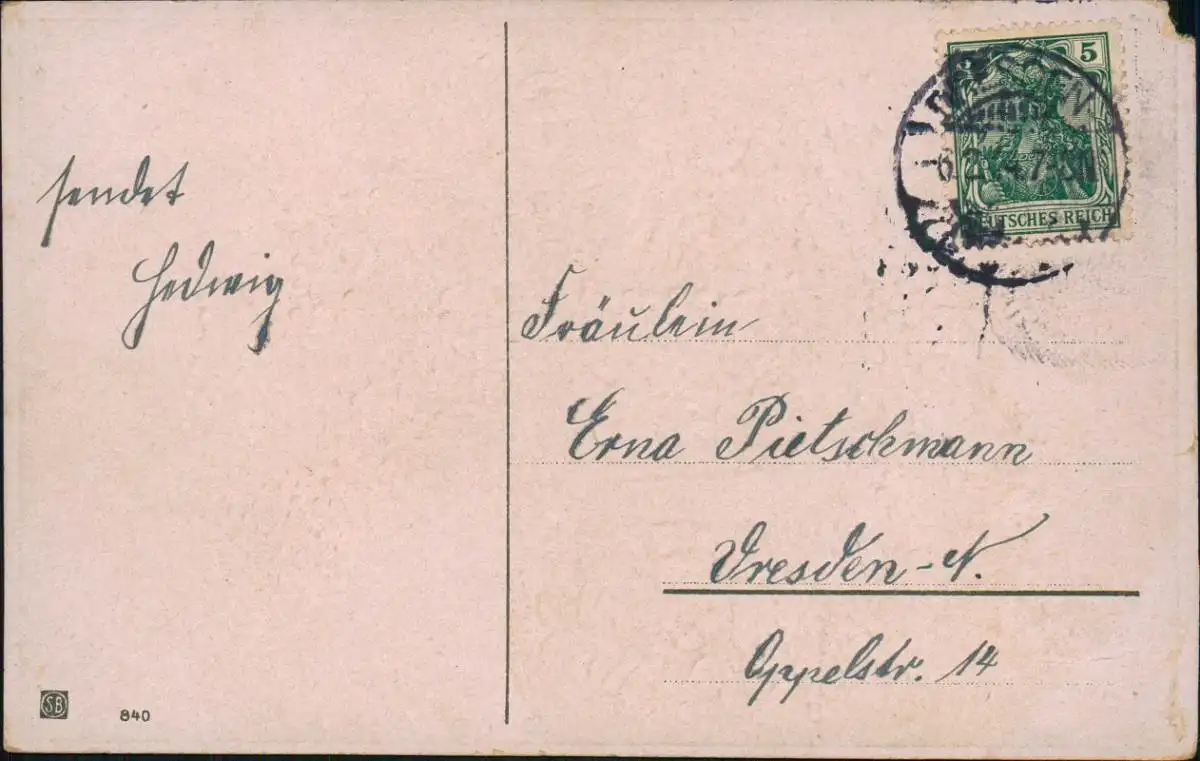 sendet
Hedwig
5
DRESDEN
DEUTSCHES REICH
Fräulein
Erna Pietschmann
Dresden-N.
Oppelstr. 14
SB
840